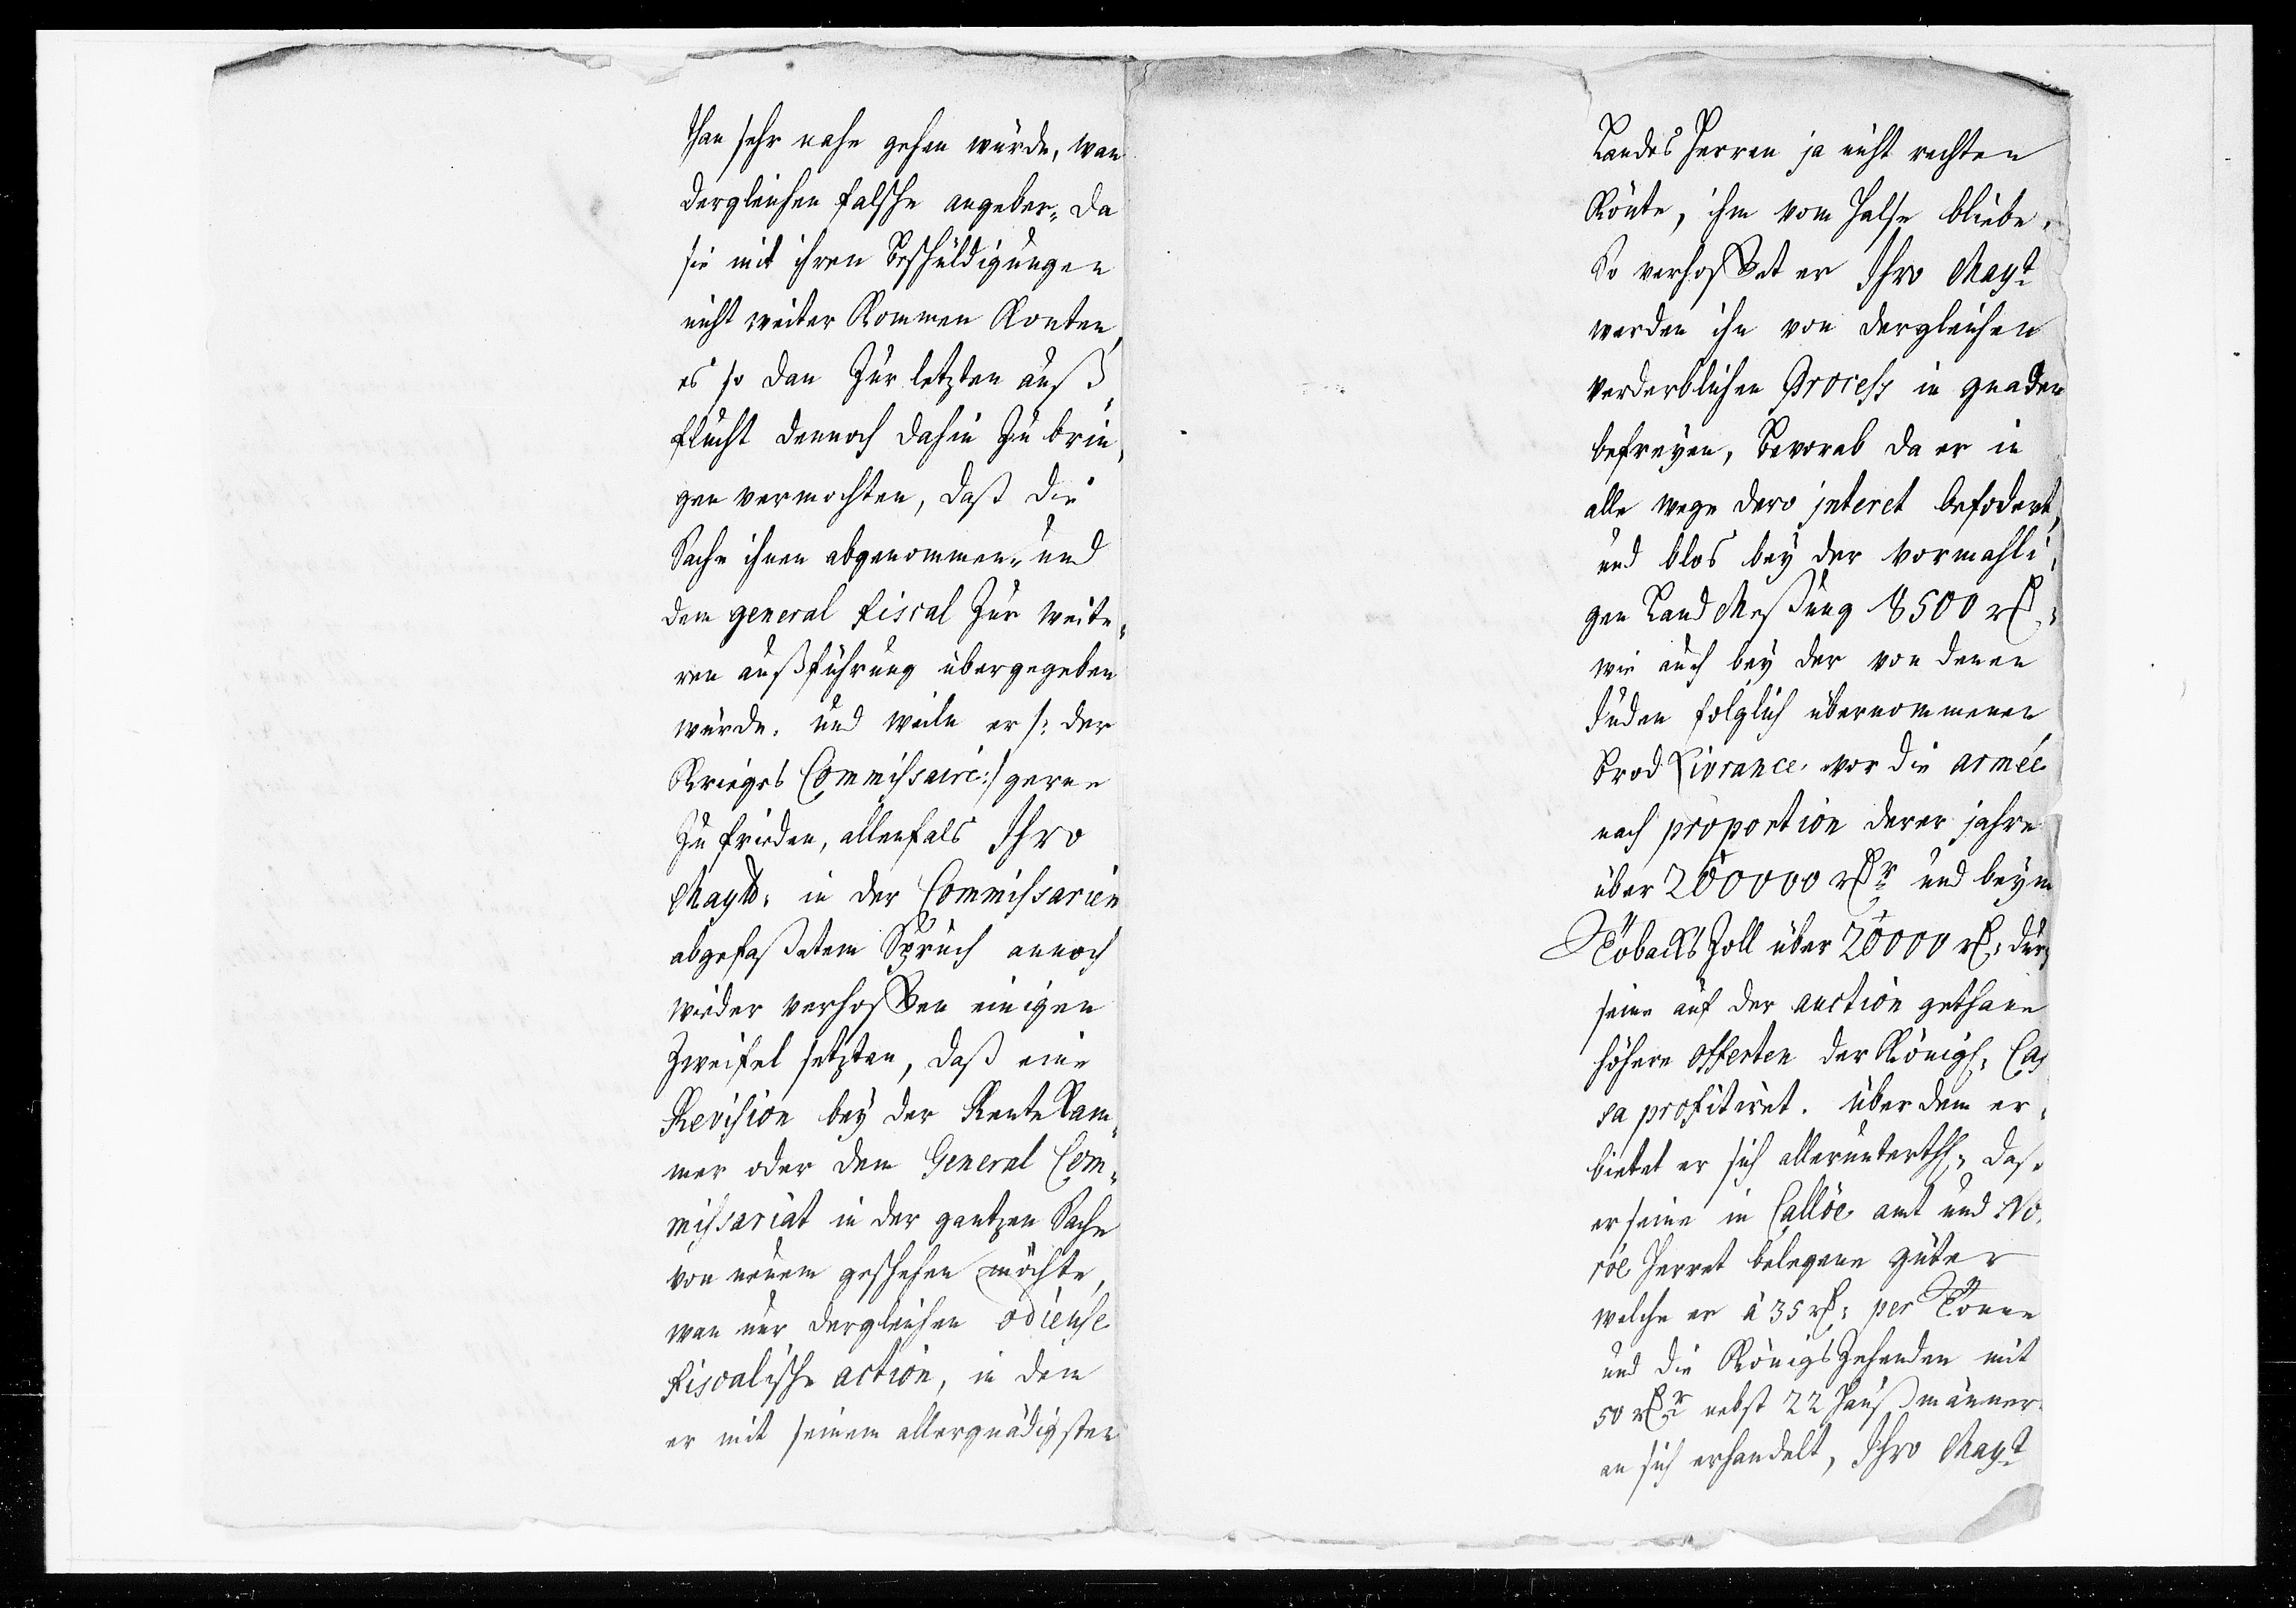 than sehr nahe gehen würde, wan
dergleichen falsche angeber, da
sie mit ihren Beschüldigungen
nicht weiter Kommen Konten,
es so dan Zur letzten auß„
flucht dennoch dahin Zu brin„
gen vermochten, daß die
Sache ihnen abgenommen, und
dem general fiscal Zur weite„
ren außführung übergegeben
würde. und weiln er /: der
Krieges Commissaire :/ gerne
Zu frieden, allenfals Ihro
Maytt: in der Commissarien
abgefaßetem Spruch annoch
wieder verhoffen einigen
Zweifel setzten, daß eine
Revision bey der RenteKam„
mer oder dem General Com„
missariat in der gantzen Sache
von neuem geschehen möchte,
wan nur dergleichen odieuse
fiscalische action, in dem
er mit seinem allergnädigsten
Landes Herren ja nicht rechten
Könte, ihm vom Halse bliebe.
So verhoffet er Ihro Mayt
werden ihn von dergleichen
verderblichen Process in gnaden
befreyen, Bevorab da er in
alle wege dero interet befodert,
und blos bey der vormahli„
gen Land Meßung 8500 rß:
wie auch bey der von denen
Juden folglich übernommenen
Brod Livrance vor die armée
nach proportion derer jahre
über 200000 rßr und beym
Tobacks Zoll über 20000 rß: dur„
seine auf der auction gethane
höhere offerten der Königl: Cas
sa profitiret. über dem er„
bietet er sich allerunterthl: daß
er seine in Callöe amt und No„
röe Herret belegene güter
welche er à 35 rß: per Tonne
und die Königs Zehenden mit
50 rßr nebst 22 Haußmänner
an sich erhandelt, Ihro Mayt